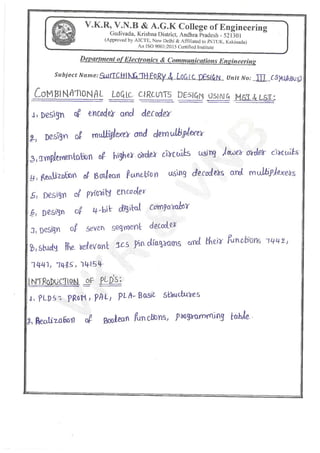 V.K.R, V.N.B & A.G.K College of Engineering
Gudivada, Krishna District, Andhra Pradesh - 521301
(Approved by AICTE, New Delhi & Affiliated to JNTUK, Kakinada)
An ISO 9001:2015 Certified Institute
Department of Electronics & Communications Engineering
Subject Name: SWITCHING THEORY & LOGIC DESIGN Unit No: III (SYLLABUS)
COMBINATIONAL LOGIC CIRCUITS DESIGN USING MSI & LSI:
1. Design of encoder and decoder
2. Design of multiplexer and demultiplexer
3. Implementation of higher order circuits using lower order circuits
4. Realization of Boolean function using decoders and multiplexers
5. Design of priority encoder
6. Design of 4-bit digital comparator
7. Design of seven segment decoder
8. Study the relevant ICs pin diagrams and their functions 7442,
7447, 7485, 74154
INTRODUCTION OF PLD'S:
1. PLDS: PROM, PAL, PLA- Basic structures
2. Realization of Boolean functions, programming table
VKR & VNB